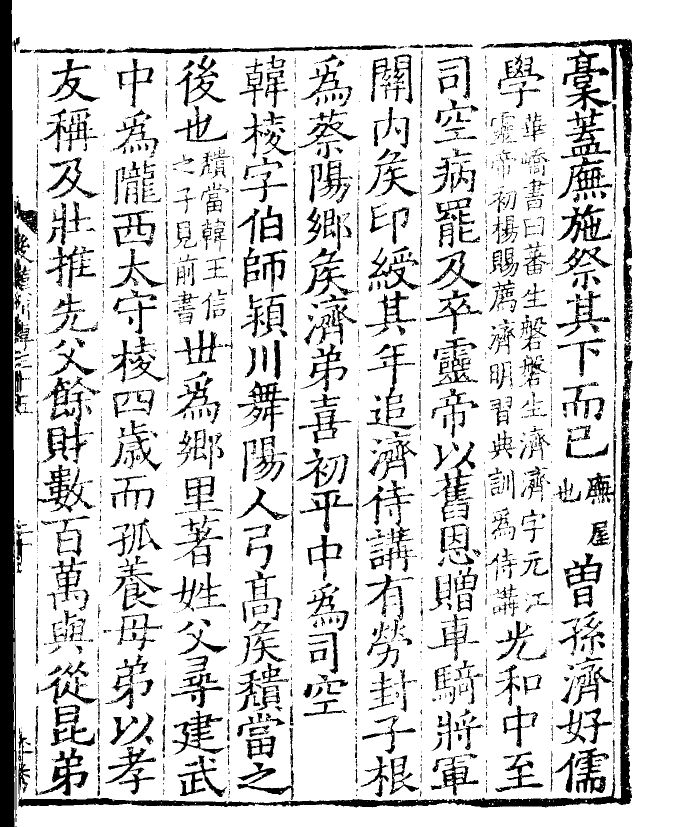 稾蓋廡施祭其下而已廡屋也曾孫濟好儒
學華嶠書曰蕃生磐磐生濟濟字元江靈帝初楊賜薦濟明習典訓爲侍講光和中至
司空病罷及卒靈帝以舊恩贈車騎將軍
關内矦印綬其年追濟侍講有勞封子根
爲蔡陽鄉矦濟弟喜初平中爲司空
韓棱字伯師潁川舞陽人弓高矦穨當之
後也穨當韓王信之子見前書丗爲鄉里著姓父尋建武
中爲隴西太守棱四歲而孤養母弟以孝
友稱及壯推先父餘財數百萬與從昆弟